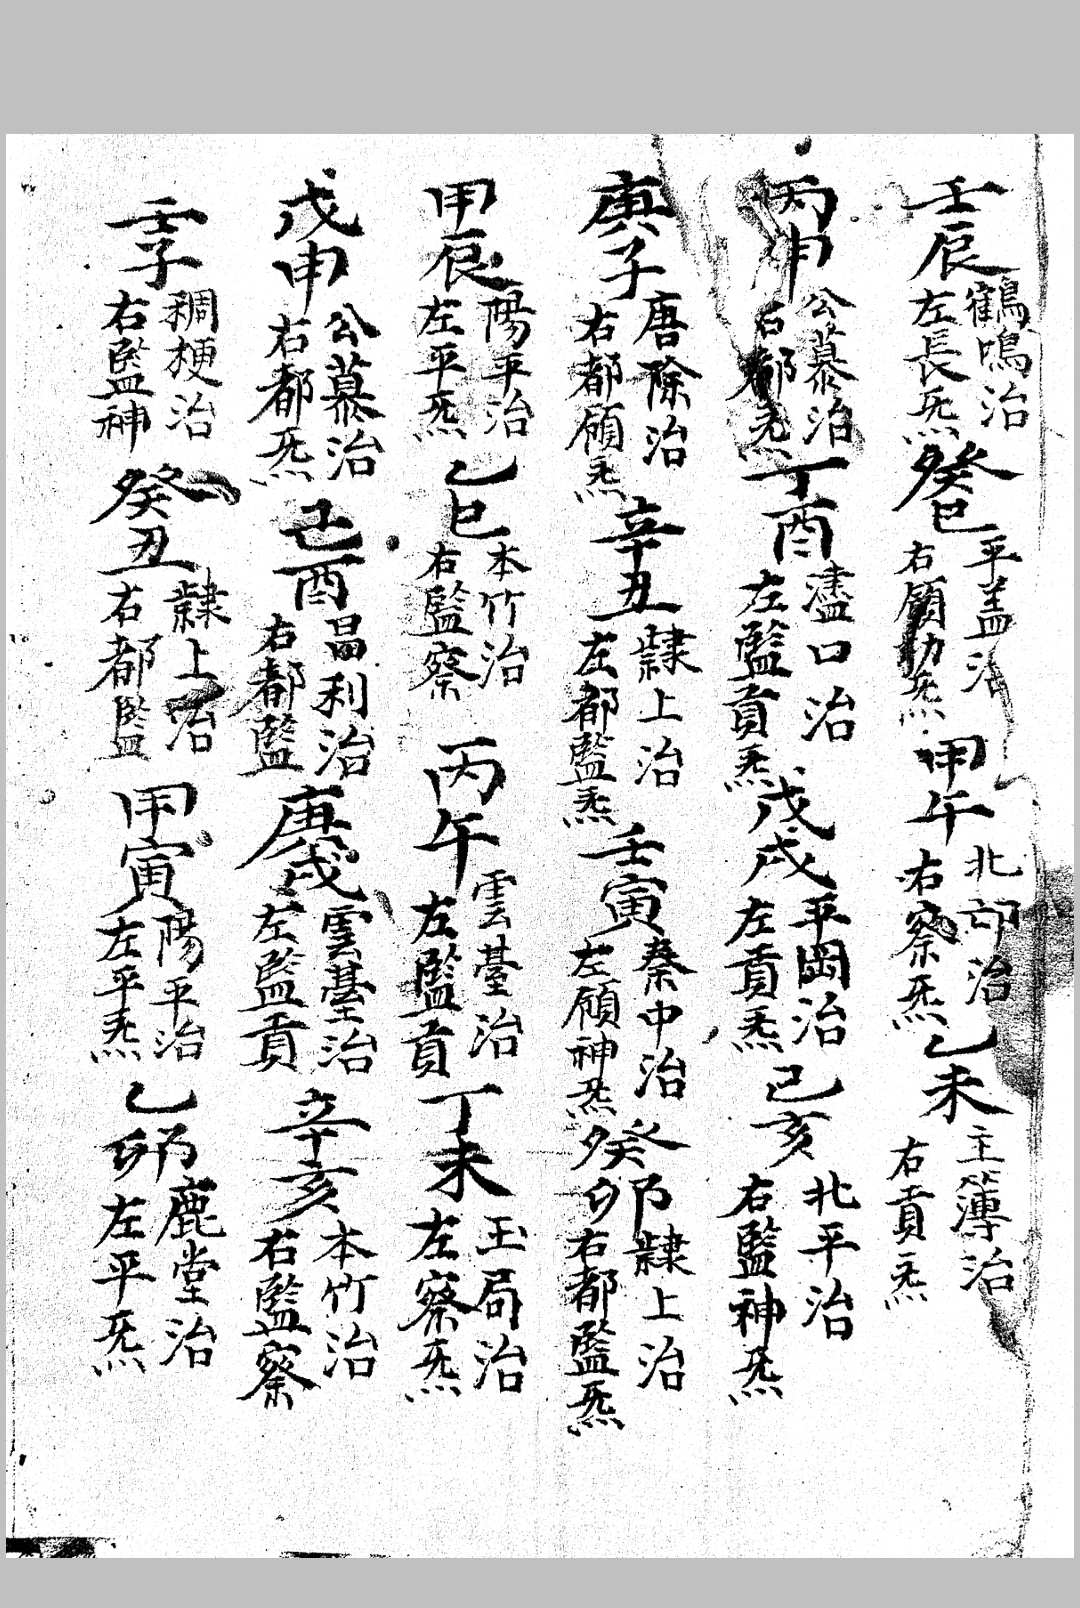 壬辰 鶴鳴治 左長炁 癸巳 平盖治 右領功炁 甲午 北邙治 右察炁 乙未 主簿治 右貢炁
丙申 公慕治 右都炁 丁酉 濜口治 左監貢炁 戊戌 平岡治 左貢炁 己亥 北平治 右監神炁
庚子 唐除治 右都領炁 辛丑 隸上治 左都監炁 壬寅 秦中治 左領神炁 癸卯 隸上治 右都監炁
甲辰 陽平治 左平炁 乙巳 本竹治 右監察 丙午 雲臺治 左監貢 丁未 玉局治 左察炁
戊申 公慕治 右都炁 己酉 昌利治 右都監 庚戌 雲臺治 左監貢 辛亥 本竹治 右監察
壬子 稠梗治 右監神 癸丑 隸上治 右都監 甲寅 陽平治 左平炁 乙卯 鹿堂治 左平炁